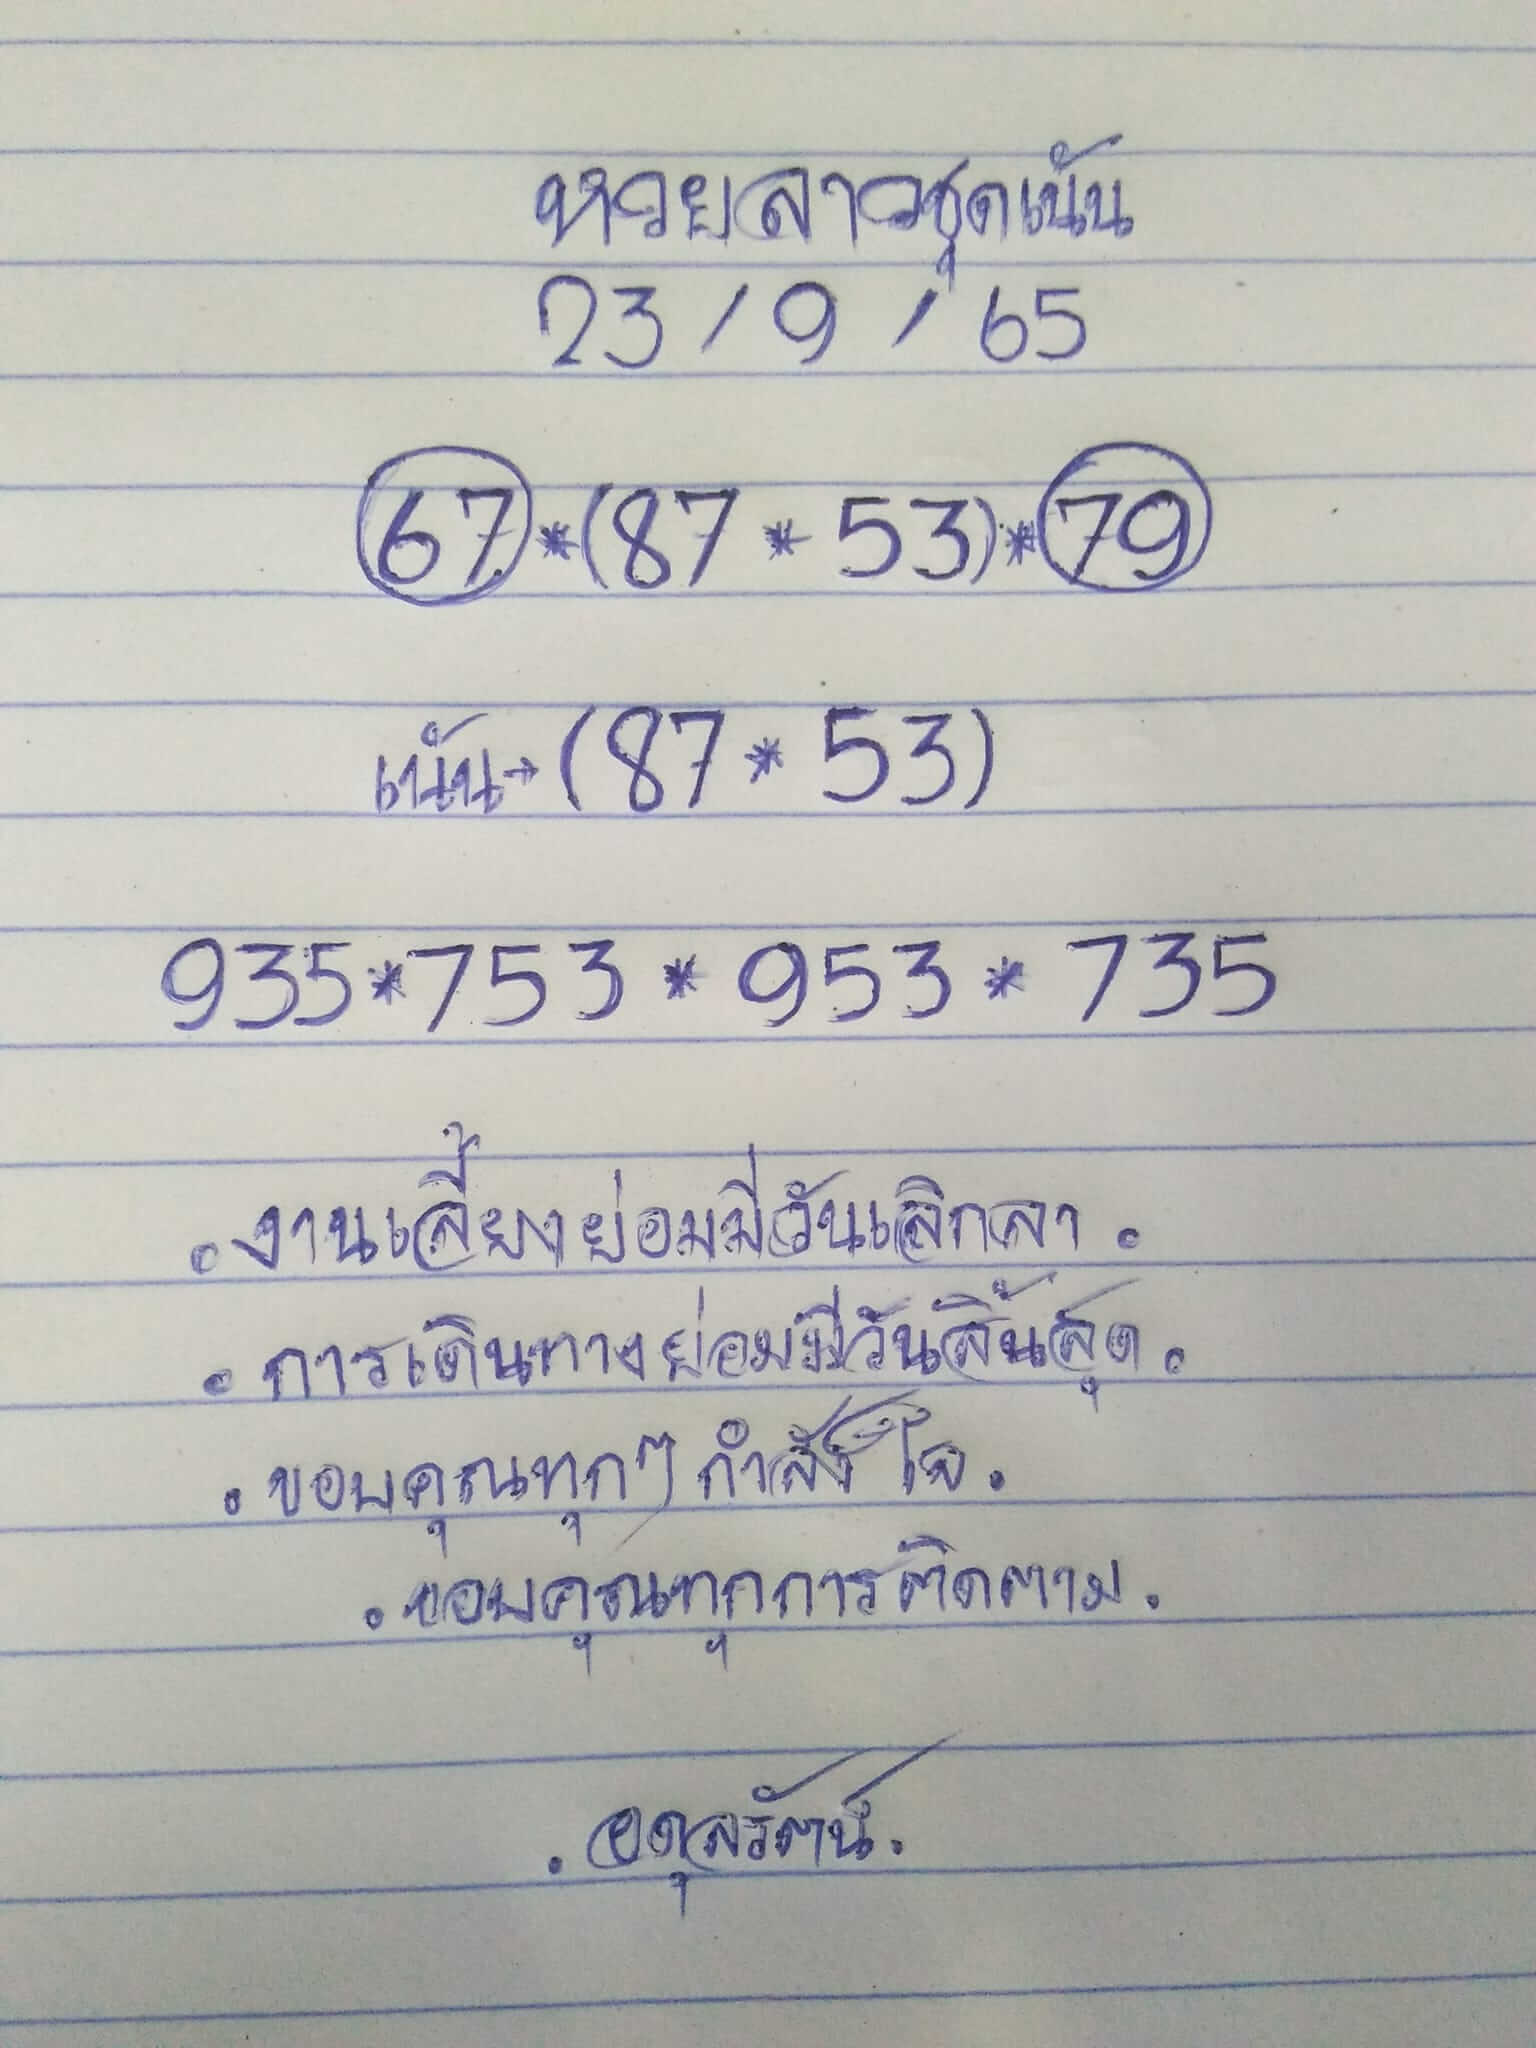 หวยลาวชุดเน้น
23/9/65
67*(87*53)*79
เน้น→(87*53)
935*753*953*735
.งานเลี้ยงย่อมมีวันเลิกลา.
.การเดินทางย่อมมีวันสิ้นสุด.
.ขอบคุณทุกๆกำลังใจ.
.ขอบคุณทุกการติดตาม.
.อดุลรัตน์.